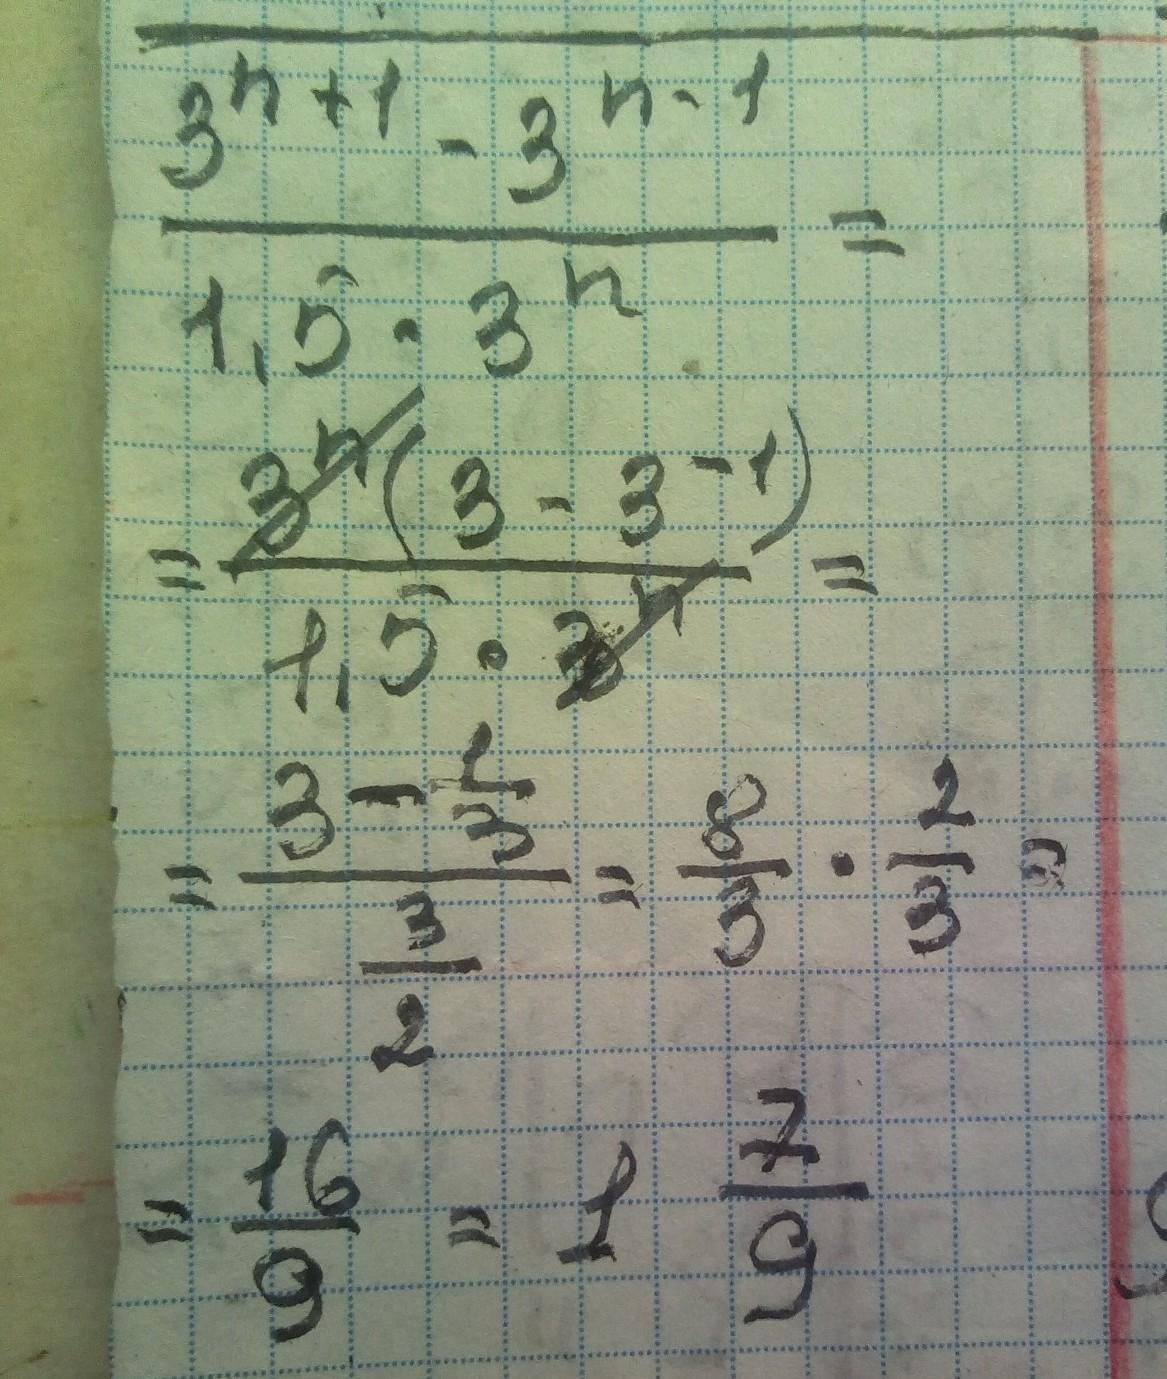 3^(n+1) - 3^(n-1)
1,5 · 3^n =
= 3^n (3 - 3^-1)
1,5 · 3^n =
= 3 - 1/3
3/2 = 8/3 · 2/3 =
= 16/9 = 1 7/9